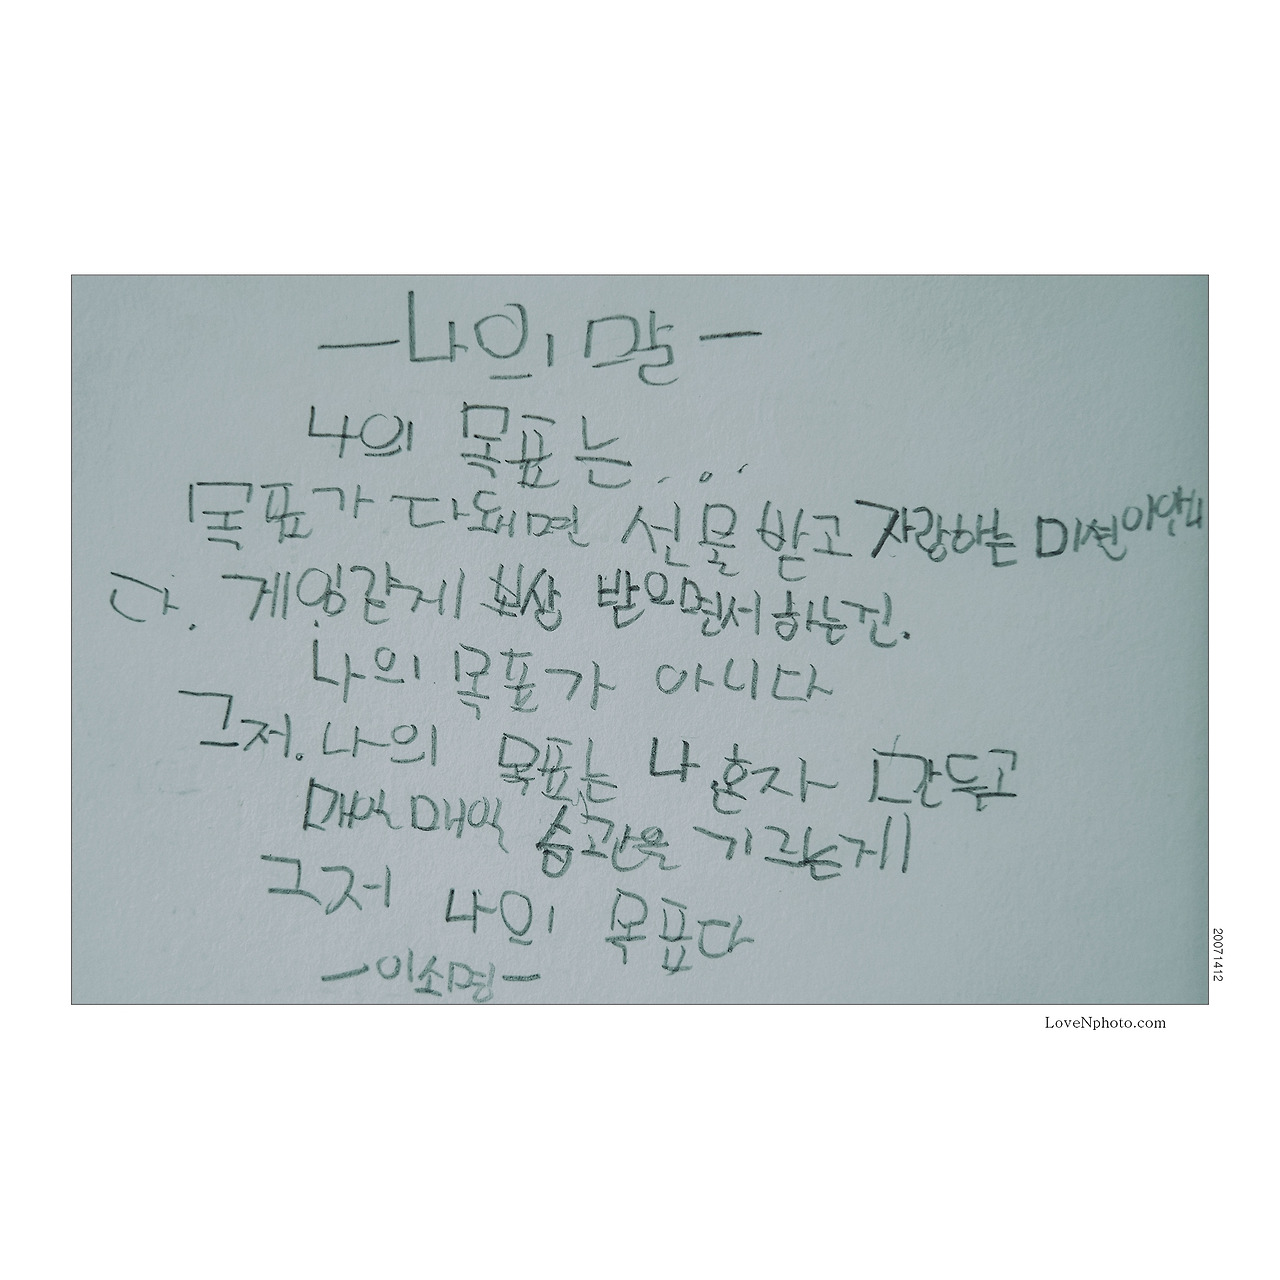 -나의 말-
나의 목표는...
목표가 다돼면 선물 받고 자랑하는 미션이아니
다. 게임같게 보상 받으면서하는건.
나의 목표가 아니다
그저. 나의 목표는 나 혼자 만두고
매일매일 습관을 기르는게
그저 나의 목표다
-이서명-
20071412
LoveNphoto.com